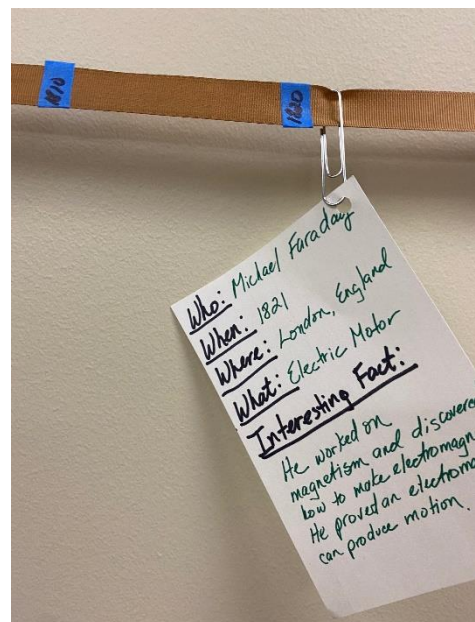 1810
1820
Who: Michael Faraday
When: 1821
Where: London, England
What: Electric Motor
Interesting Fact:
He worked on
magnetism and discovered
how to make electromagn
He proved an electroma
can produce motion.